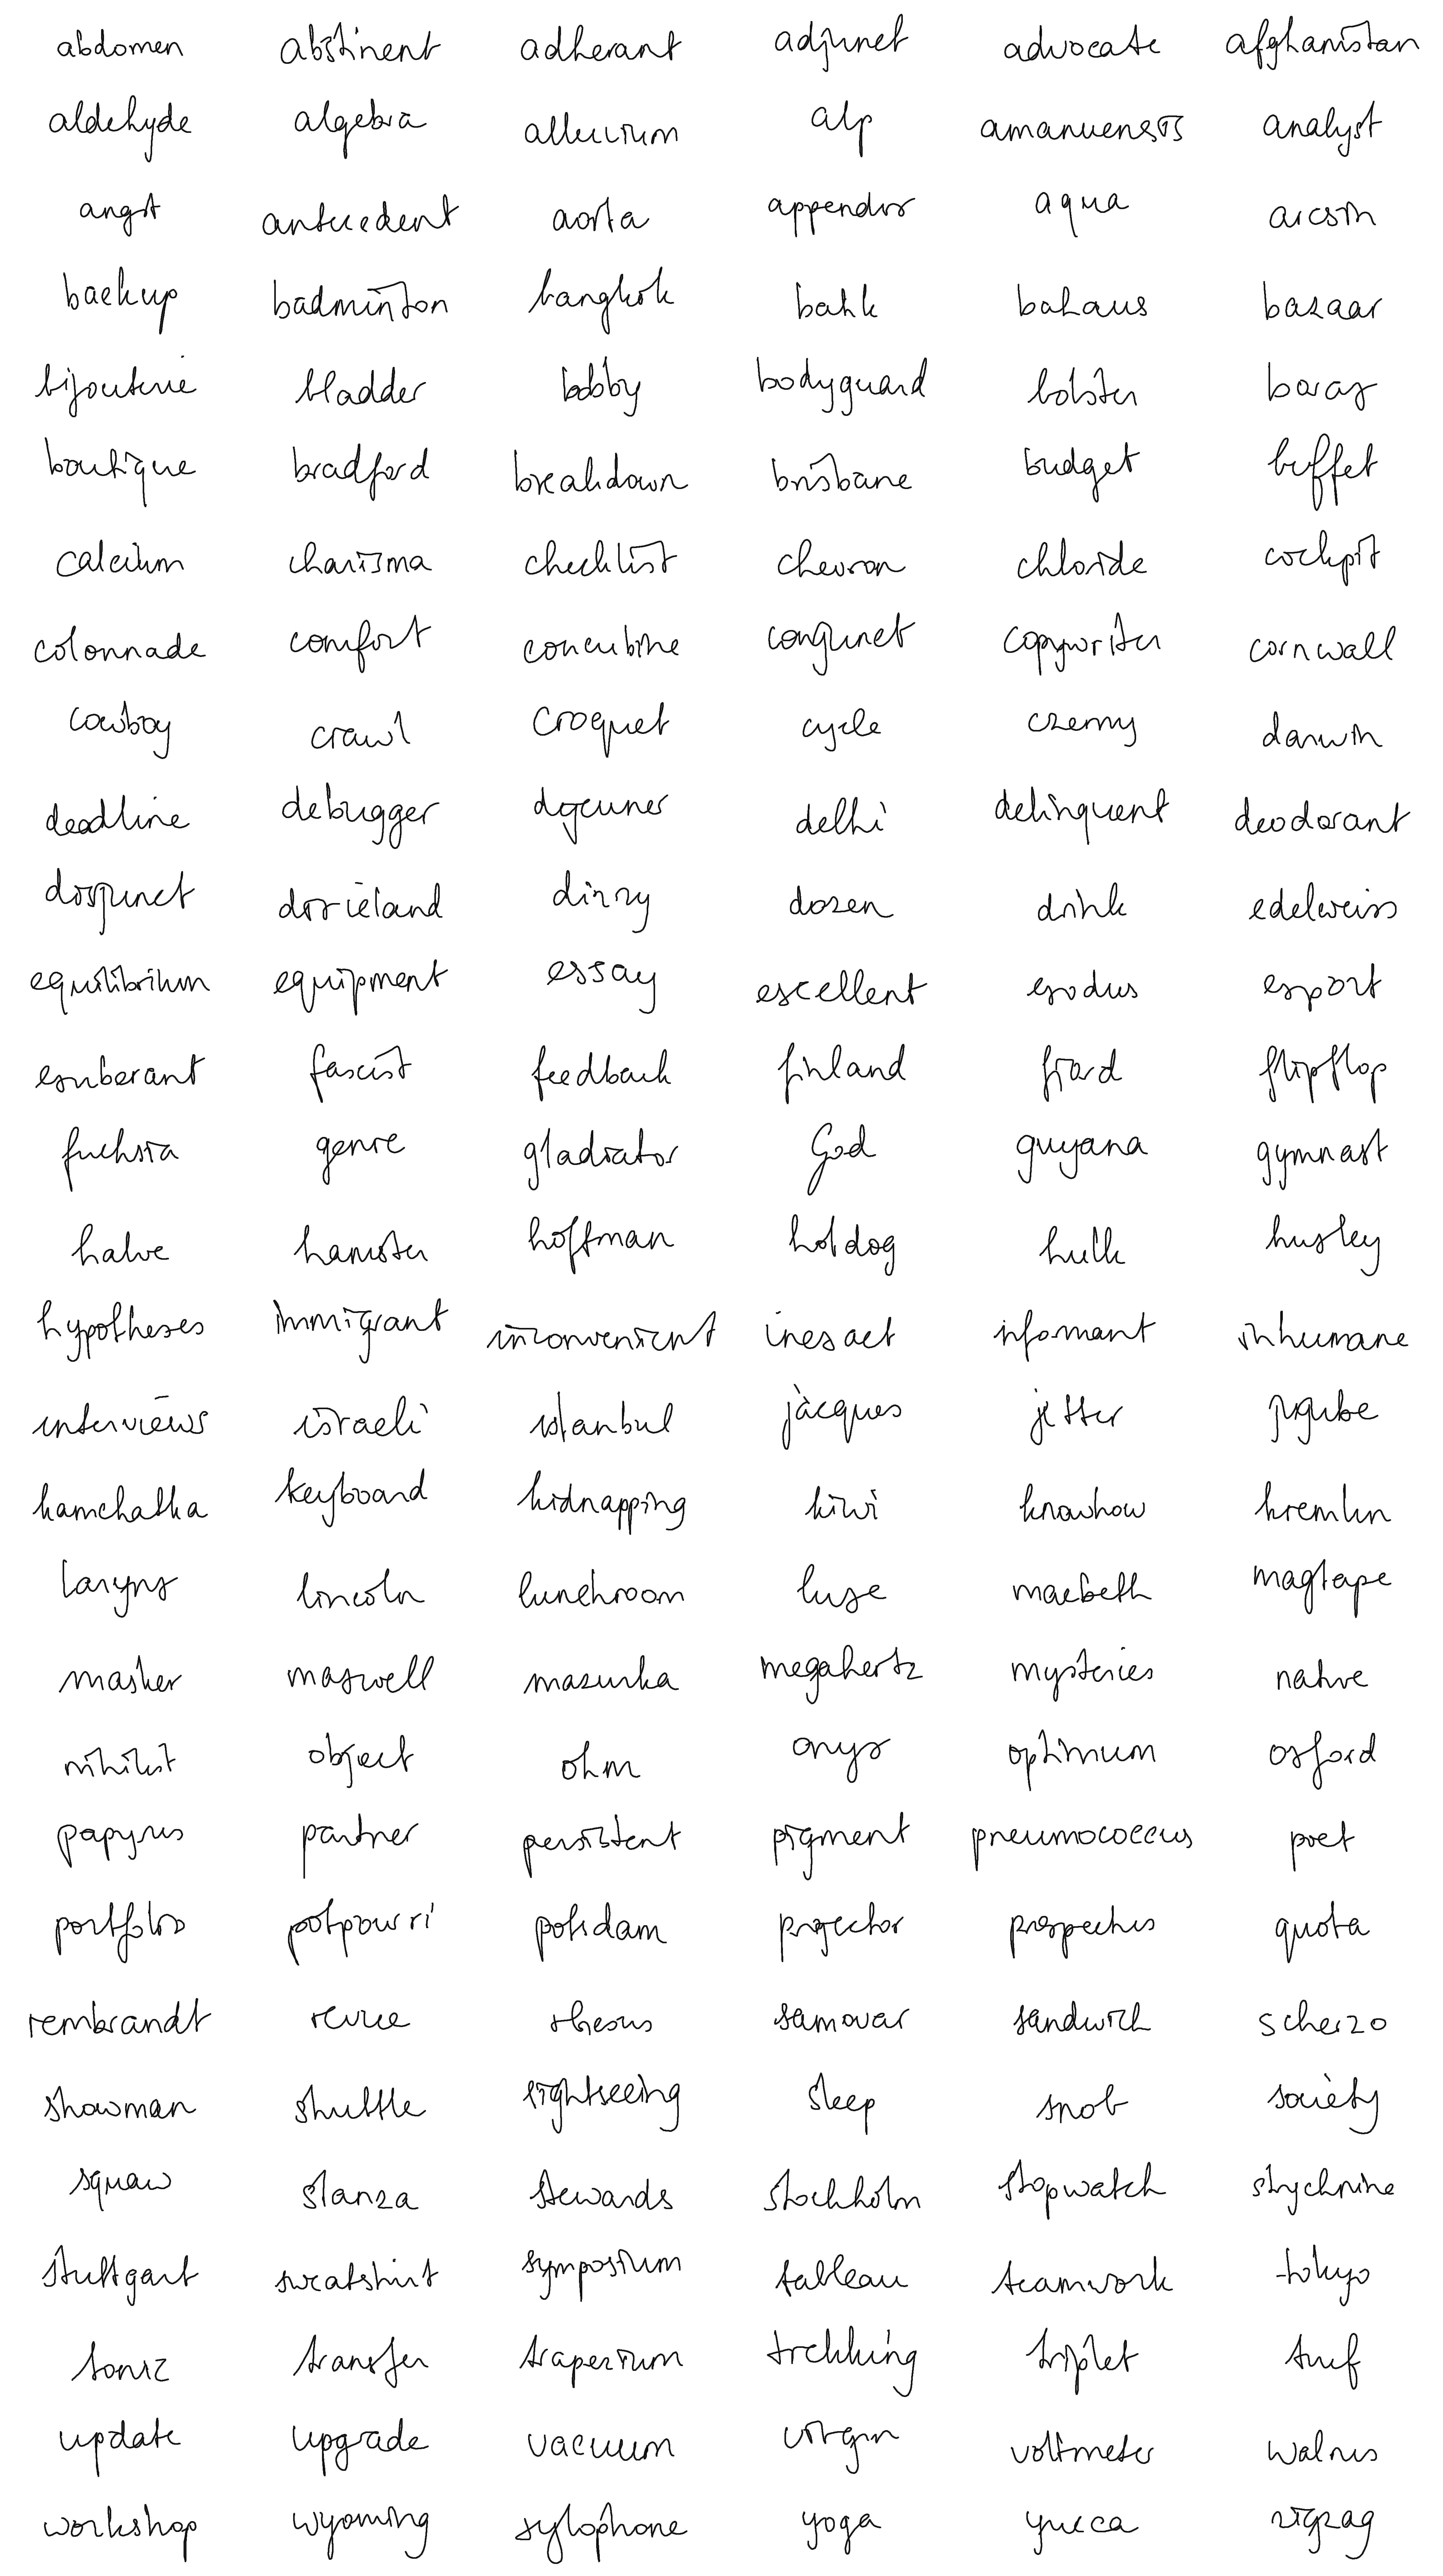 abdomen abstinent adherant adjunct advocate afghanistan
aldehyde algebra alluvium alp amanuensis analyst
angst antecedent aorta appendix aqua arcsin
backup badminton bangkok bahk bahaus bazaar
bijouterie bladder bobby bodyguard bolster borax
boutique bradford breakdown brisbane budget buffet
calcium charisma checklist chevron chloride cockpit
colonnade comfort concubine conjunct copywriter cornwall
cowboy crawl croquet cycle czerny darwin
deadline debugger dejeuner delhi delinquent deodorant
disjunct dixieland dizzy dozen drink edelweiss
equilibrium equipment essay excellent exodus export
exuberant fascist feedback finland fjord flipflop
fuchsia genre gladiator God guyana gymnast
halve hamster hoffman hotdog hulk huxley
hypotheses immigrant inconvenient inexact informant inhumane
interviews israeli istanbul jacques jitter jujube
kamchatka keyboard kidnapping kiwi knowhow kremlin
larynx lincoln lunchroom luxe macbeth magtape
masker maxwell mazurka megahertz mysteries native
nihilist object ohm onyx optimum oxford
papyrus partner persistent pigment pneumococcus poet
portfolio potpourri potsdam projector prospectus quota
rembrandt revue rhesus samovar sandwich scherzo
showman shuttle sightseeing sleep snob society
squaw stanza stewards stockholm stopwatch strychnine
stuttgart sweatshirt symposium tableau teamwork tokyo
topaz transfer trapezium trekking triplet turf
update upgrade vacuum virgin voltmeter walrus
workshop wyoming xylophone yoga yucca zigzag